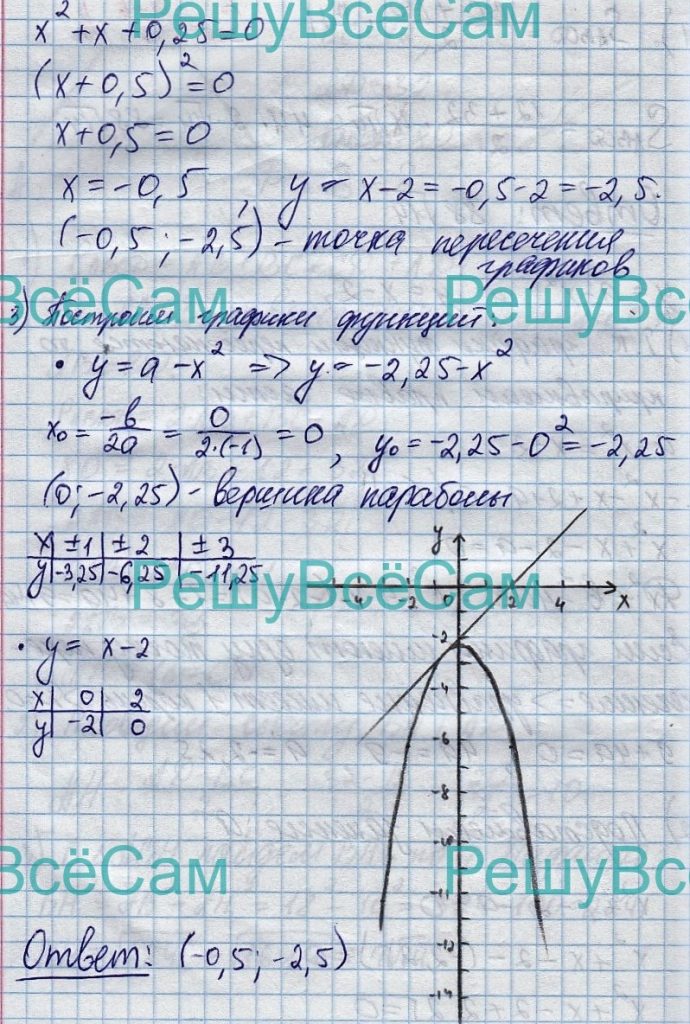 РешуВсёСам
x² + x + 0,25 = 0
(x + 0,5)² = 0
x + 0,5 = 0
x = -0,5 , y = x - 2 = -0,5 - 2 = -2,5.
(-0,5 ; -2,5) - точка пересечения
графиков
ВсёСам РешуВсё
3) Построим графики функций:
• y = a - x² => y = -2,25 - x²
x₀ = -b/2a = 0/2·(-1) = 0 , y₀ = -2,25 - 0² = -2,25
(0; -2,25) - вершина параболы
x | ±1 | ±2 | ±3
y | -3,25 | -6,25 | -11,25
РешуВсёСам
y
-4 -2 0 2 4 x
-2
-4
-6
-8
-10
-11
-12
-14
• y = x - 2
x | 0 | 2
y | -2 | 0
ВсёСам РешуВсё
Ответ: (-0,5; -2,5)